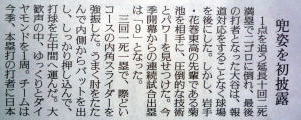 兜姿を初披露
1点を追う延長十回二死
満塁で二ゴロに倒れ、最後
の打者となった大谷は、報
道対応をすることなく球場
を後にした。しかし、岩手
・花巻東高の先輩である菊
池を相手に、圧倒的な技術
とパワーを見せつけた。今
季開幕からの連続試合出塁
は「9」となった。
三回一死一塁で、際どい
コースの内角スライダーを
強振した。うまく肘をたた
んで内側からバットを出
し、しっかり押し込んで、
打球を左中間へ運んだ。大
歓声の中、ゆっくりとダイ
ヤモンドを1周。チームは
今季、本塁打の打者に日本